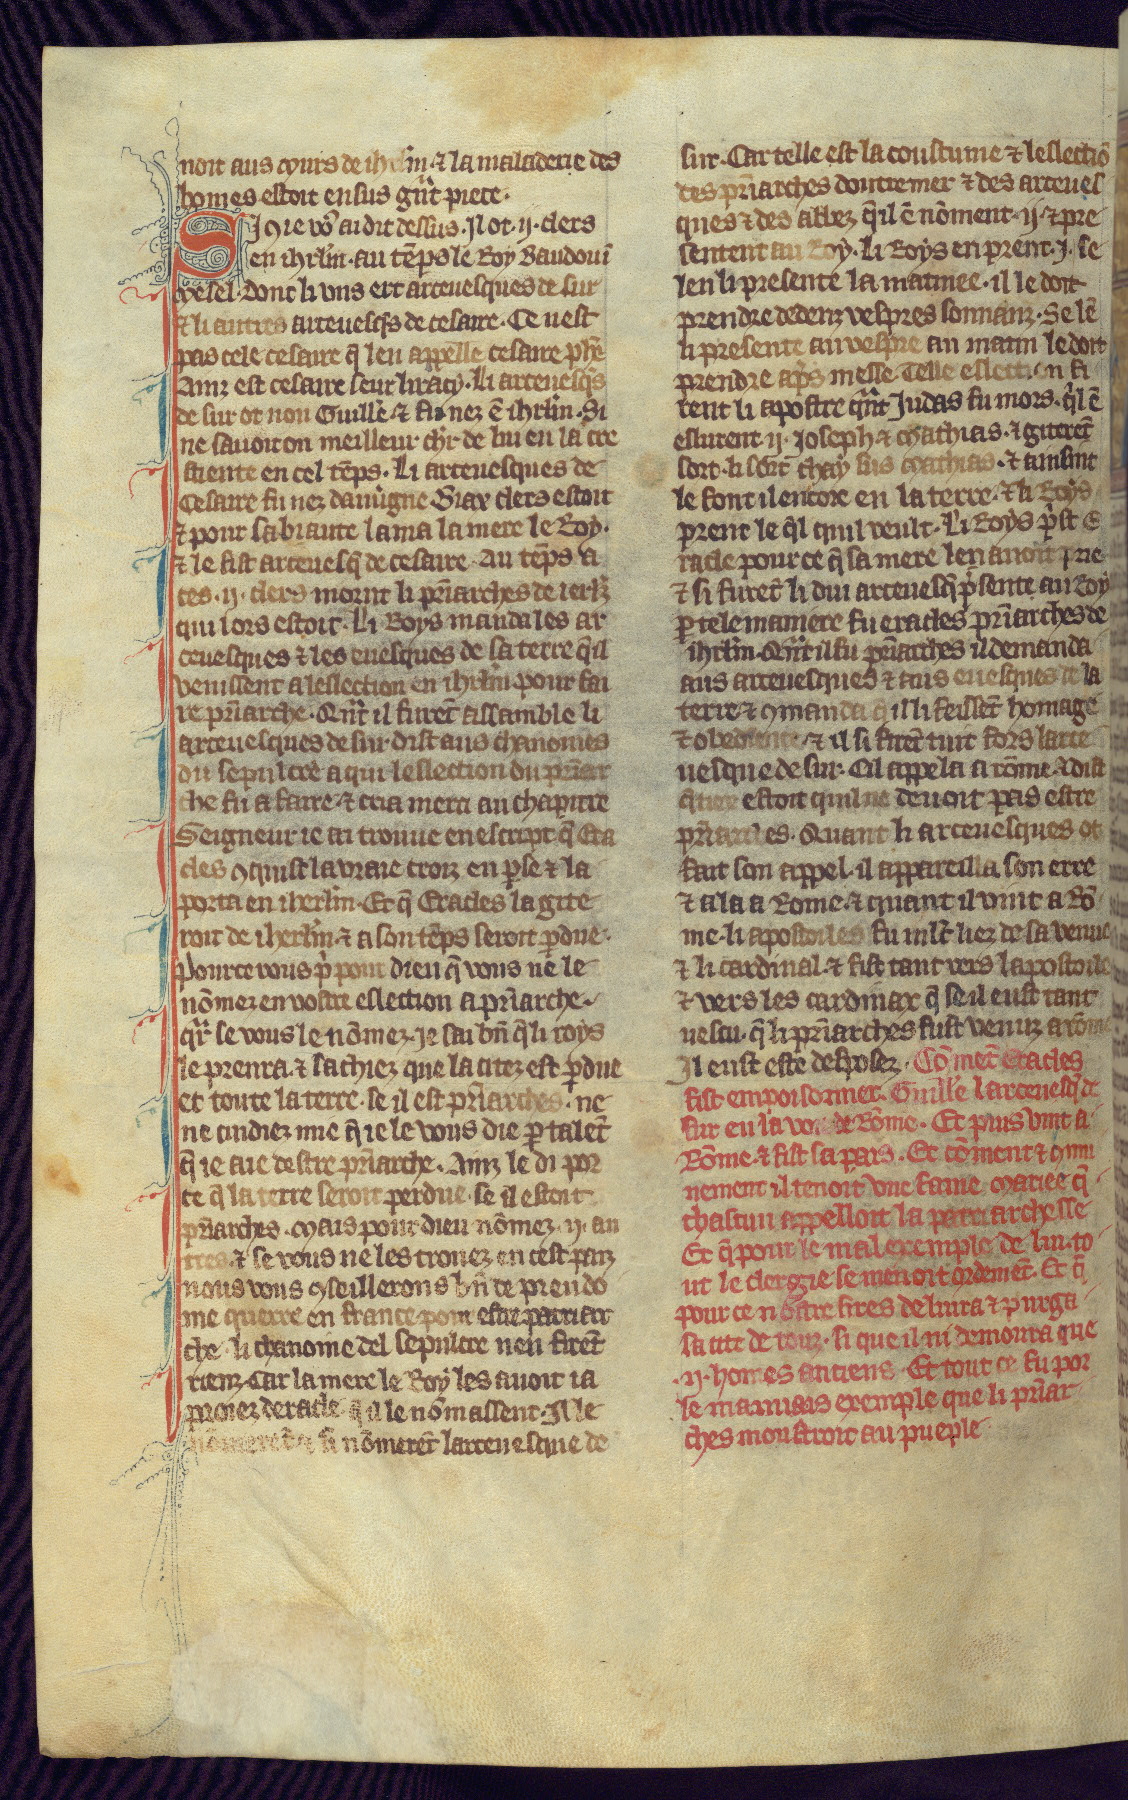 noit aus murs de ihrlm̃ ⁊ la maladerie des
homes estoit ensus gñt piece.
Si ꝯ ie vos̾ ai dit dessus. Jl ot .ij. clers
en ihrlm̃. au tẽps le Roy Baudouĩ
mesel. dont li vns ert arceuesques de sur
⁊ li autres arceuesq̃s de cesaire. Ce nest
pas cele cesaire q̃ len appelle cesaire phẽ
Ainz est cesaire seur la mer. Li arceuesq̃s
de sur ot non Guillẽ ⁊ fu nez ẽ ihrlm̃. Si
ne sauoit on meilleur chr̃. de lui en la cre
stiente en cel tẽps. Li arceuesques de
Cesaire fu nez dauũgne. Biax clers estoit
⁊ pour sa biaute lama la mere le Roy.
⁊ le fist arceuesq̃ de cesaire. Au tẽps a
ces .ij. clers morut li pr̃iarches de ierłz
qui lors estoit. Li Roys manda les ar
ceuesques ⁊ les euesques de sa terre q̃il
venissent a leslection en ihrlm̃ pour fai
re pr̃iarche. Qñt il furẽt assamble li
arceuesques de sur dist aus chanoines
du sepulcre a qui leslection du pr̃iar
che fu a faire ⁊ cria merci au chapitre
Seigneur ie ai trouue en escript q̃ Era
cles ꝯquist la vraie croiz en p̱se ⁊ la
porta en iherlm̃. Et q̃ Eracles la gite
roit de iherlm̃ ⁊ a son tẽps seroit p̱due.
Pour ce vous pͥ pour dieu q̃ vous ne le
nõmez en vostre eslection a pr̃iarche.
qr̃ se vous le nõmez. Je sai bñ q̃ li roys
le prenra. ⁊ sachiez que la citez est p̱due
et toute la terre. se il est pr̃iarches. ne
ne cuidiez mie q̃ ie le vous die p̱ talẽt
q̃ ie aie destre pr̃iarche. Ainz le di por
ce q̃ la terre seroit perdue. se il estoit
pr̃iarches. Mais pour dieu nõmez .ij. au
tres. ⁊ se vous ne les trouez en cest paiz
nous vous ꝯseillerons bñ de preudo
me querre en france pour estre patriar
che. li chanoine del sepulcre nen firẽt
rienz. Car la mere le Roy les auoit ia
proiez deracle q̃ il le nõmassent. Jl le
nõmerẽt ⁊ si nõmerẽt larceuesque de
sur. Car telle est la coustume ⁊ leslectiõ
des pr̃iarches doutremer ⁊ des arceues
ques ⁊ des abbez q̃ il ẽ nõment .ij. ⁊ pre
sentent au Roy. Li Roys en prent .j. se
len li presente la matinee. il le doit
prendre dedenz vespres sonnanz. Se lẽ
li presente au vespre au matin le doit
prendre ap̃s messe. Telle eslection fi
rent li apostre qñt Judas fu mors. q̃l ẽ
eslurent .ij. Joseph ⁊ Mathias. ⁊ giterẽt
sort. li sort chay sus Mathias. ⁊ ainsint
le font il encore en la terre. ⁊ li Roys
prent le q̃l quil veult. Li Roys pͥst E
racle pour ce q̃ sa mere len auoit prie
⁊ si furẽt li dui arceuesq̃ pͥsente au Roy
p̱ tele maniere fu eracles pr̃iarches de
ihrlm̃. Qñt il fu pr̃iarches il demanda
aus arceuesques ⁊ aus euesques de la
terre ⁊ ꝯmanda q̃ il li feissẽt homage
⁊ obedience. ⁊ il si firẽt tuit fors larce
uesque de sur. Cil appela a rõme ⁊ dist
estoit quil ne deuoit pas estre
pr̃iarches. Quant li arceuesques ot
fait son appel. il appareilla son erre
⁊ ala a Rome. ⁊ quant il vint a Rõ
me. li apostoiles fu mlt̃ liez de sa venue
⁊ li cardinal. ⁊ fist tant vers lapostoile
⁊ vers les cardinax q̃ se il eust tant
vescu. q̃ li pr̃iarches fust venuz a rõme
Jl eust este desposez. Cõmẽt Eracles
fist empoisonner. Guillẽ larceuesq̃ de
sur en la voie de Rõme. Et puis vint a
Rõme. ⁊ fist sa pars. Et cõment ⁊ ꝯmu
nement il tenoit vne fame mariee q̃
chascun appelloit la patriarchesse
Et q̃ pour le mal exemple de lui. to
ut le clergzie se menoit ordenemẽt. Et q̃
pour ce nostre sires deliura ⁊ purga
sa cite de touz. si que il ni demoura que
.ij. homes anciens. Et tout ce fu por
le mauuais exemple que li pr̃iar
ches monstroit au pueple